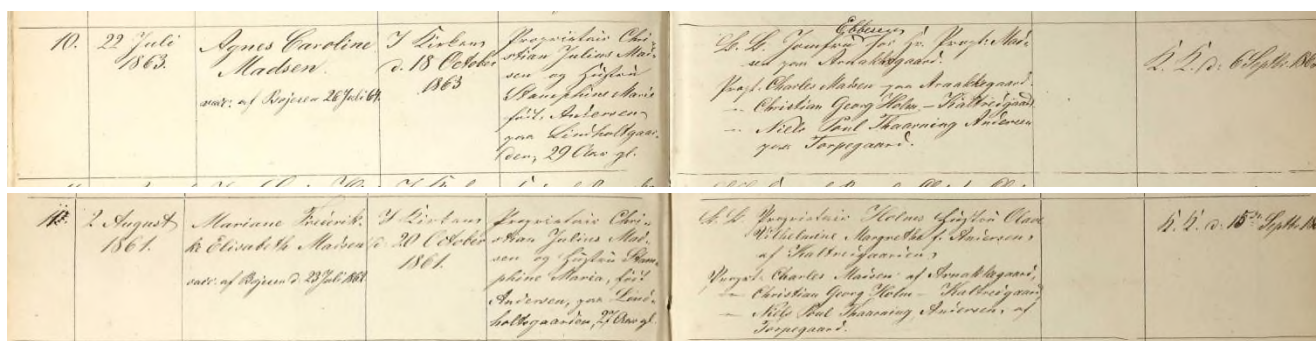 10.
22 Juli
1863.
Agnes Caroline
Madsen.
vacc: af Bojesen 26 Juli 64.
I Kirken
d. 18 October
1863
Proprietair Chri-
stian Julius Mad-
sen og Hustru
Stamphine Marie
født Andersen
paa Lindholtgaar-
den, 29 Aar gl.
Ebbesen
Jomfru for Hr. Propr: Mad-
sen paa Arnakkegaard.
Propr. Charles Madsen paa Arnakkegaard
— Christian Georg Holm – Kaltredgaard
— Niels Poul Thaarning Andersen
paa Torpegaard.
K. K. d: 6 Septbr
2 August
1861.
Mariane Fredrik-
ke Elisabeth Madsen
vacc: af Bojesen d. 23 Juli 186
I Kirken
d. 20 October
1861.
Proprietair Chri-
stian Julius Mad-
sen og Hustru Stam-
phine Maria, født
Andersen, paa Lind-
holtsgaarden, 27 Aar gl.
Proprietair Holms Hustru Olave
Vilhelmine Margrethe f. Andersen,
af Kaltredgaarden,
Propr. Charles Madsen af Arnakkegaard,
— Christian Georg Holm – Kaltredgaard
— Niels Poul Thaarning Andersen, af
Torpegaard.
K. K. d: 15 Septbr